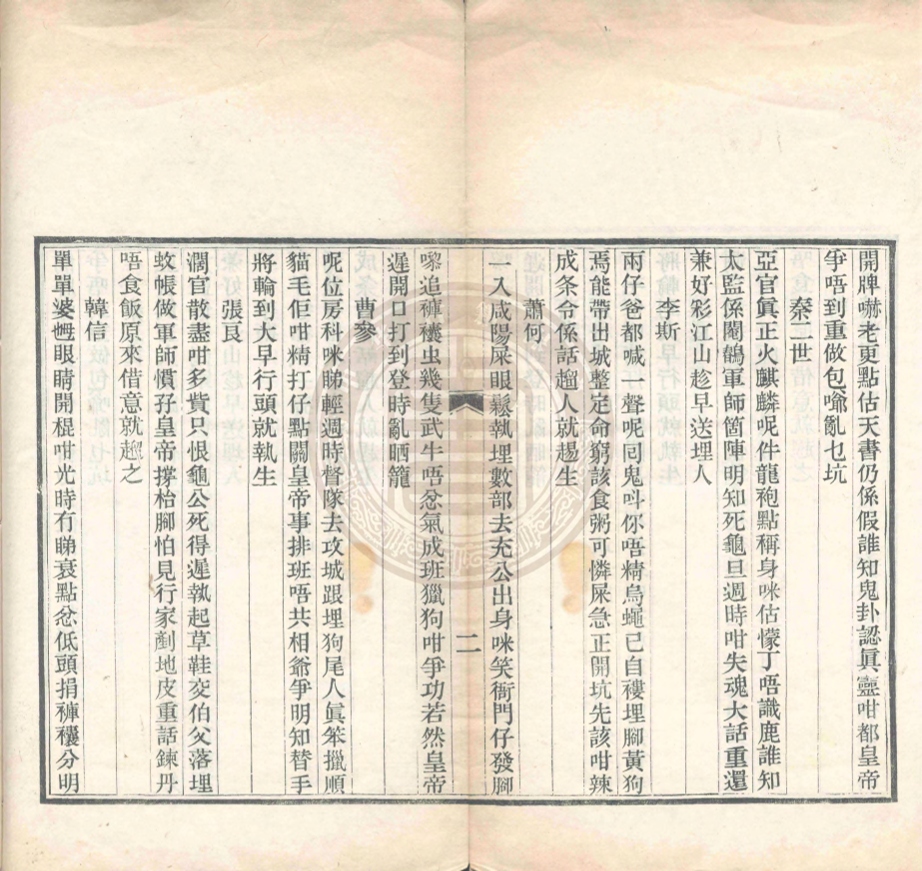 開牌嚇老更點估天書仍係假誰知鬼卦認眞靈咁都皇帝
爭唔到重做包喻亂乜坑
秦二世
亞官眞正火麒麟呢件龍袍點稱身咪估懞丁唔識鹿誰知
太監係閹鷄軍師箇陣明知死龜旦週時咁失魂大話重還
兼好彩江山趁早送埋人
李斯
兩仔爸都喊一聲呢回鬼呌你唔精烏蠅已自褸埋腳黃狗
焉能帶出城整定命窮該食粥可憐屎急正開坑先該咁辣
成条令係話趯人就趯生
蕭何
一入咸陽屎眼鬆執埋數部去充公出身咪笑衙門仔發腳
嚟追褲𧞫虫幾隻武牛唔忿氣成班獵狗咁爭功若然皇帝
遲開口打到登時亂晒籠
二
曹參
呢位房科咪睇輕週時督隊去攻城跟埋狗尾人眞笨擸順
貓毛佢咁精打仔點關皇帝事排班唔共相爺爭明知替手
將輪到大早行頭就執生
張良
濶官散盡咁多貲只恨龜公死得遲執起草鞋交伯父落埋
蚊帳做軍師慣孖皇帝撐枱腳怕見行家剷地皮重話鍊丹
唔食飯原來借意就趯之
韓信
單單婆乸眼睛開棍咁光時冇睇衰點忿低頭捐褲𧞫分明